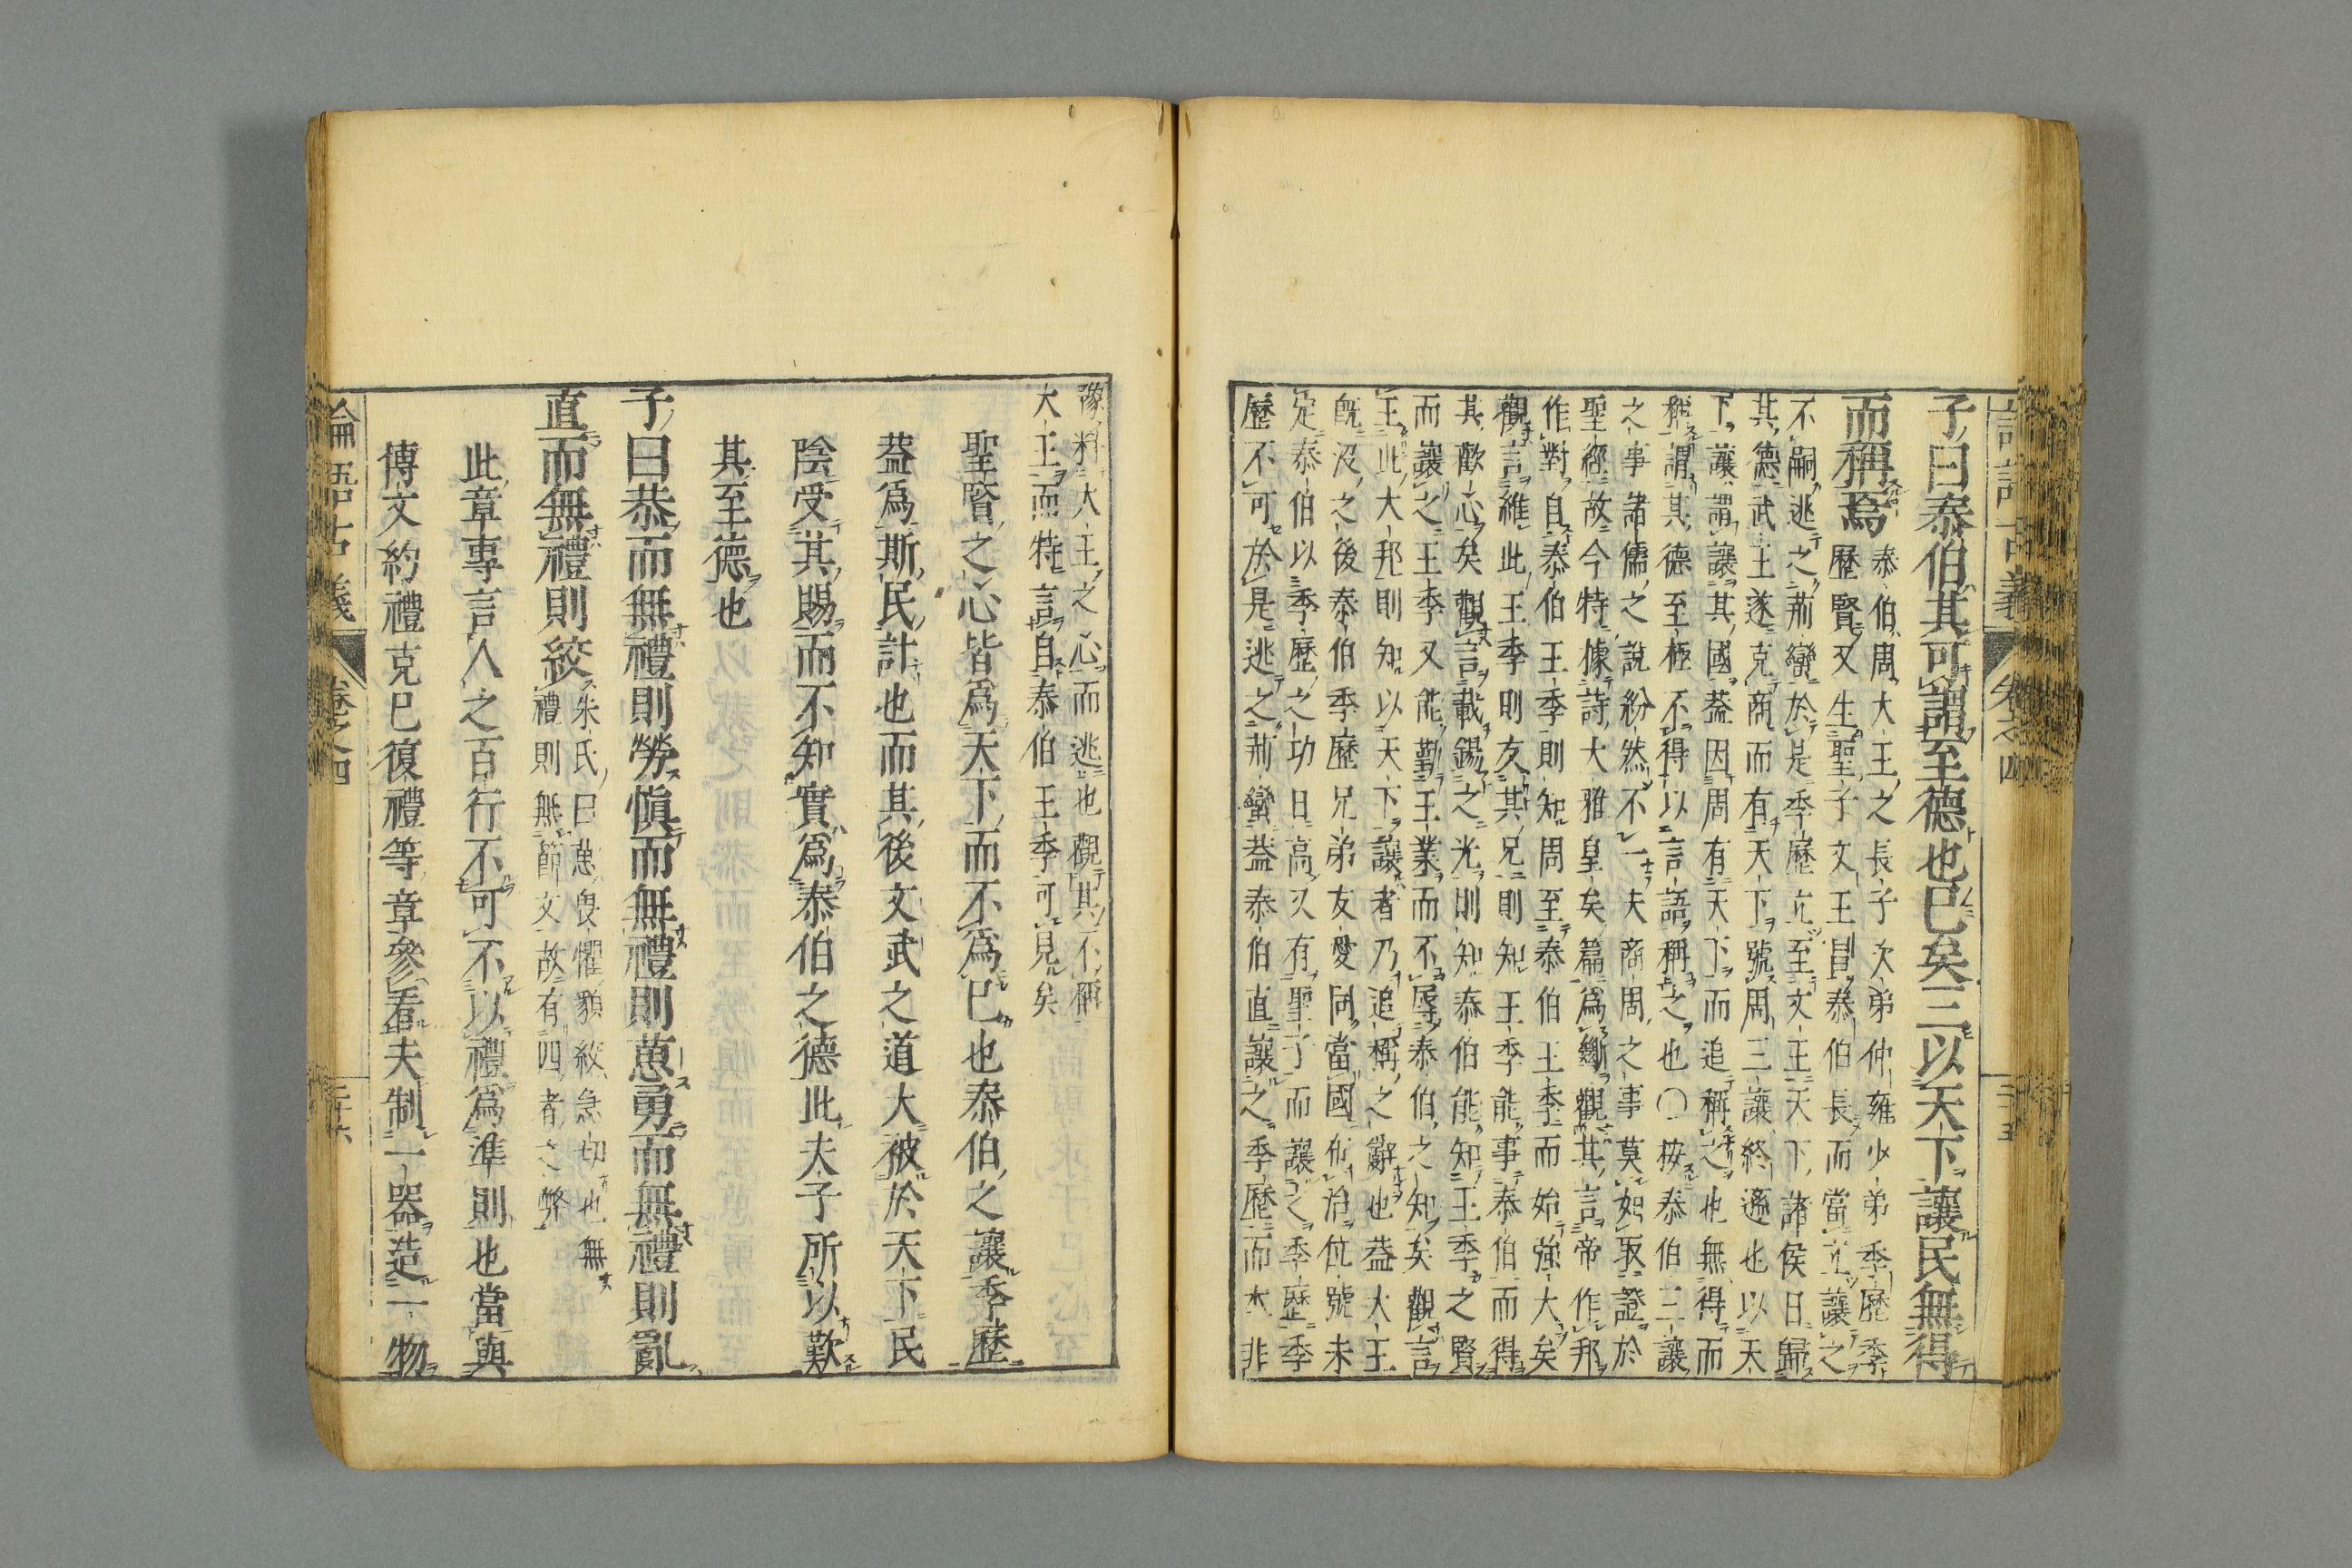 子曰泰伯其可謂至德也已矣三以天下讓民無得
而稱焉
泰伯周大王之長子次弟仲雍少弟季歷季
歷賢又生聖子文王昌泰伯長而當立讓之
不嗣逃之荊蠻於是季歷立至文王天下諸侯日歸
其德武王遂克商而有天下號周三讓終遜也以天
下讓謂讓其國蓋因周有天下而追稱之也無得而
稱謂其德至極不得以言語稱之也〇按泰伯三讓
之事諸儒之說紛然不一夫商周之事莫如取證於
聖經故今特據詩大雅皇矣篇爲斷觀其言帝作邦
作對自泰伯王季則知周至泰伯王季而始強大矣
觀言維此王季則友其兄則知王季能事泰伯而得
其歡心矣觀言載錫之光則知泰伯能知王季之賢
而讓之王季又能勤王業而不辱泰伯之知矣觀言
王此大邦則知以天下讓者乃追稱之辭也蓋大王
旣沒之後泰伯季歷兄弟友愛同當國布治位號未
定泰伯以季歷之功日高又有聖子而讓之季歷季
歷不可於是逃之荊蠻蓋泰伯直讓之季歷而大非
豫料大王之心而逃也觀其不稱
大王而特言自泰伯王季可見矣
聖賢之心皆爲天下而不爲己也泰伯之讓季歷
蓋爲斯民計也而其後文武之道大被於天下民
陰受其賜而不知實爲泰伯之德此夫子所以歎
其至德也
子曰恭而無禮則勞愼而無禮則葸勇而無禮則亂
直而無禮則絞
朱氏曰葸畏懼貌絞急切也無
禮則無節文故有四者之弊
此章專言人之百行不可不以禮爲準則也當與
博文約禮克己復禮等章參看夫制一器造一物
論語古義 卷之四